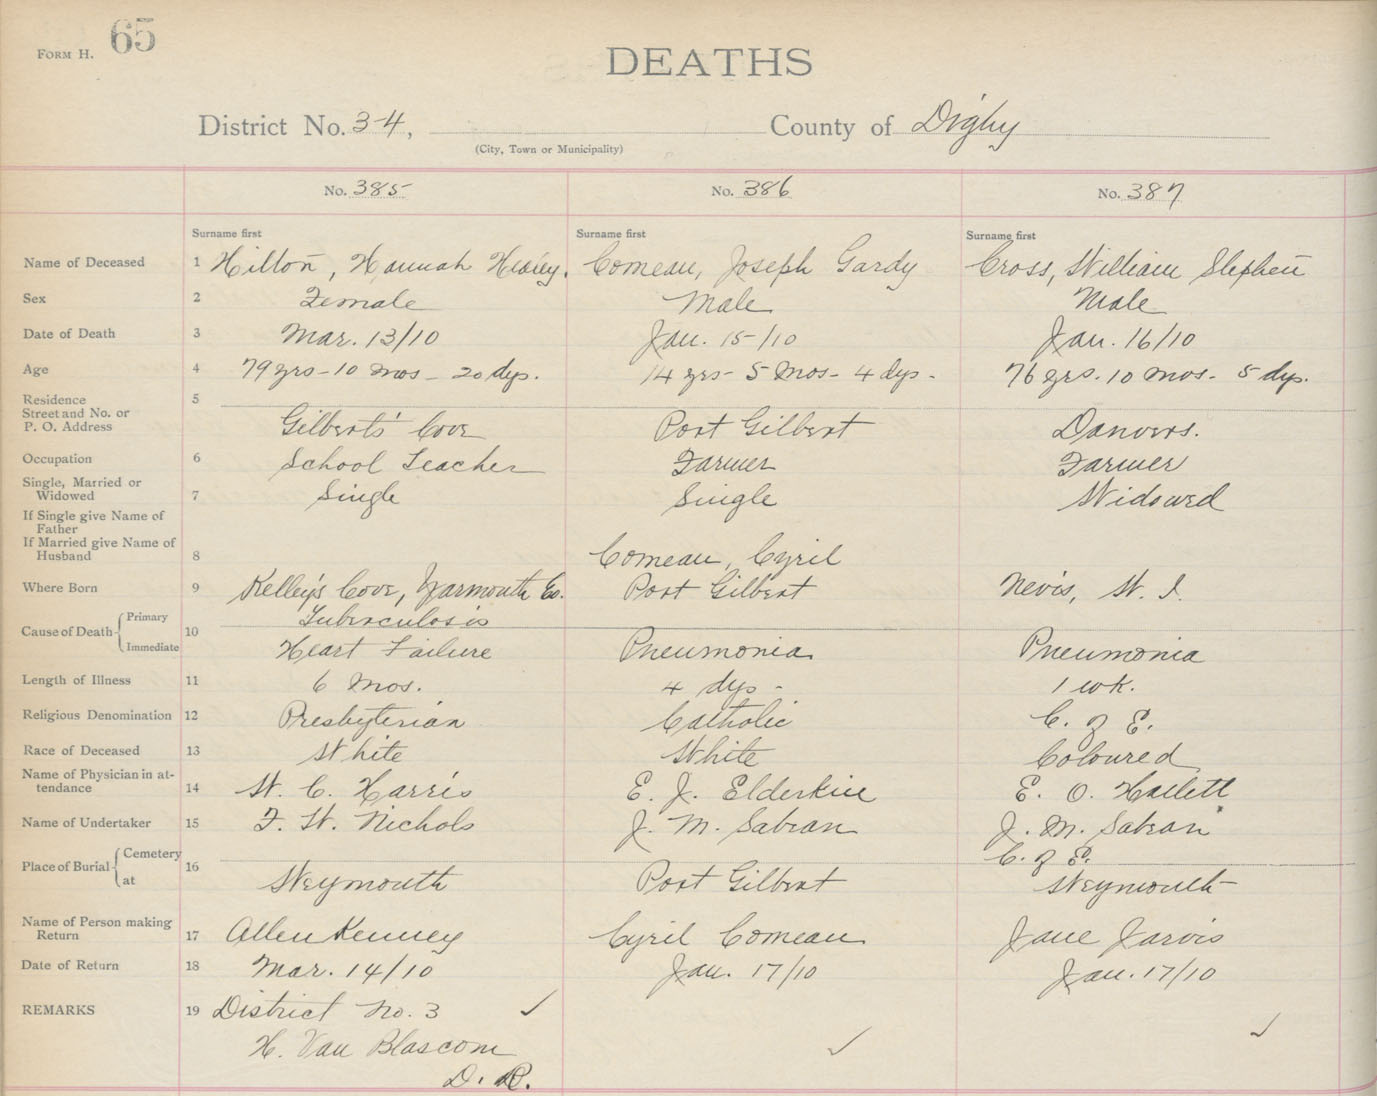 FORM H. 65
DEATHS
District No. 3-4, County of Digby
(City, Town or Municipality)
No. 385 No. 386 No. 387
Surname first Surname first Surname first
Name of Deceased 1 Hilton, Hannah Comeau, Joseph Gardy Cross, William Stephen
Sex 2 Female Male Male
Date of Death 3 Mar. 13/10 Jan. 15/10 Jan. 16/10
Age 4 79 yrs - 10 mos - 20 dys. 14 yrs - 5 mos - 4 dys - 76 yrs. 10 mos - 5 dys.
Residence 5
Street and No. or
P. O. Address Gilbert's Cove Port Gilbert Danvers.
Occupation 6 School Teacher Farmer Farmer
Single, Married or
Widowed 7 Single Single Widowed
If Single give Name of
Father
If Married give Name of
Husband 8 Comeau, Cyril
Where Born 9 Kelley's Cove, Yarmouth Co. Port Gilbert Nevis, W. I.
Cause of Death Primary 10 Tuberculosis
Immediate Heart Failure Pneumonia Pneumonia
Length of Illness 11 6 mos. 4 dys - 1 wk.
Religious Denomination 12 Presbyterian Catholic C. of E.
Race of Deceased 13 White White Coloured
Name of Physician in at-
tendance 14 W. C. Harris E. J. Elderkin E. O. Hallett
Name of Undertaker 15 F. W. Nichols J. M. Sabean J. M. Sabean
Place of Burial Cemetery 16 C. of E.
at Weymouth Port Gilbert Weymouth
Name of Person making
Return 17 Allen Kenney Cyril Comeau Jane Jarvis
Date of Return 18 Mar. 14/10 Jan. 17/10 Jan. 17/10
REMARKS 19 District No. 3 ✓
H. Van Blascom ✓ ✓
D. R.